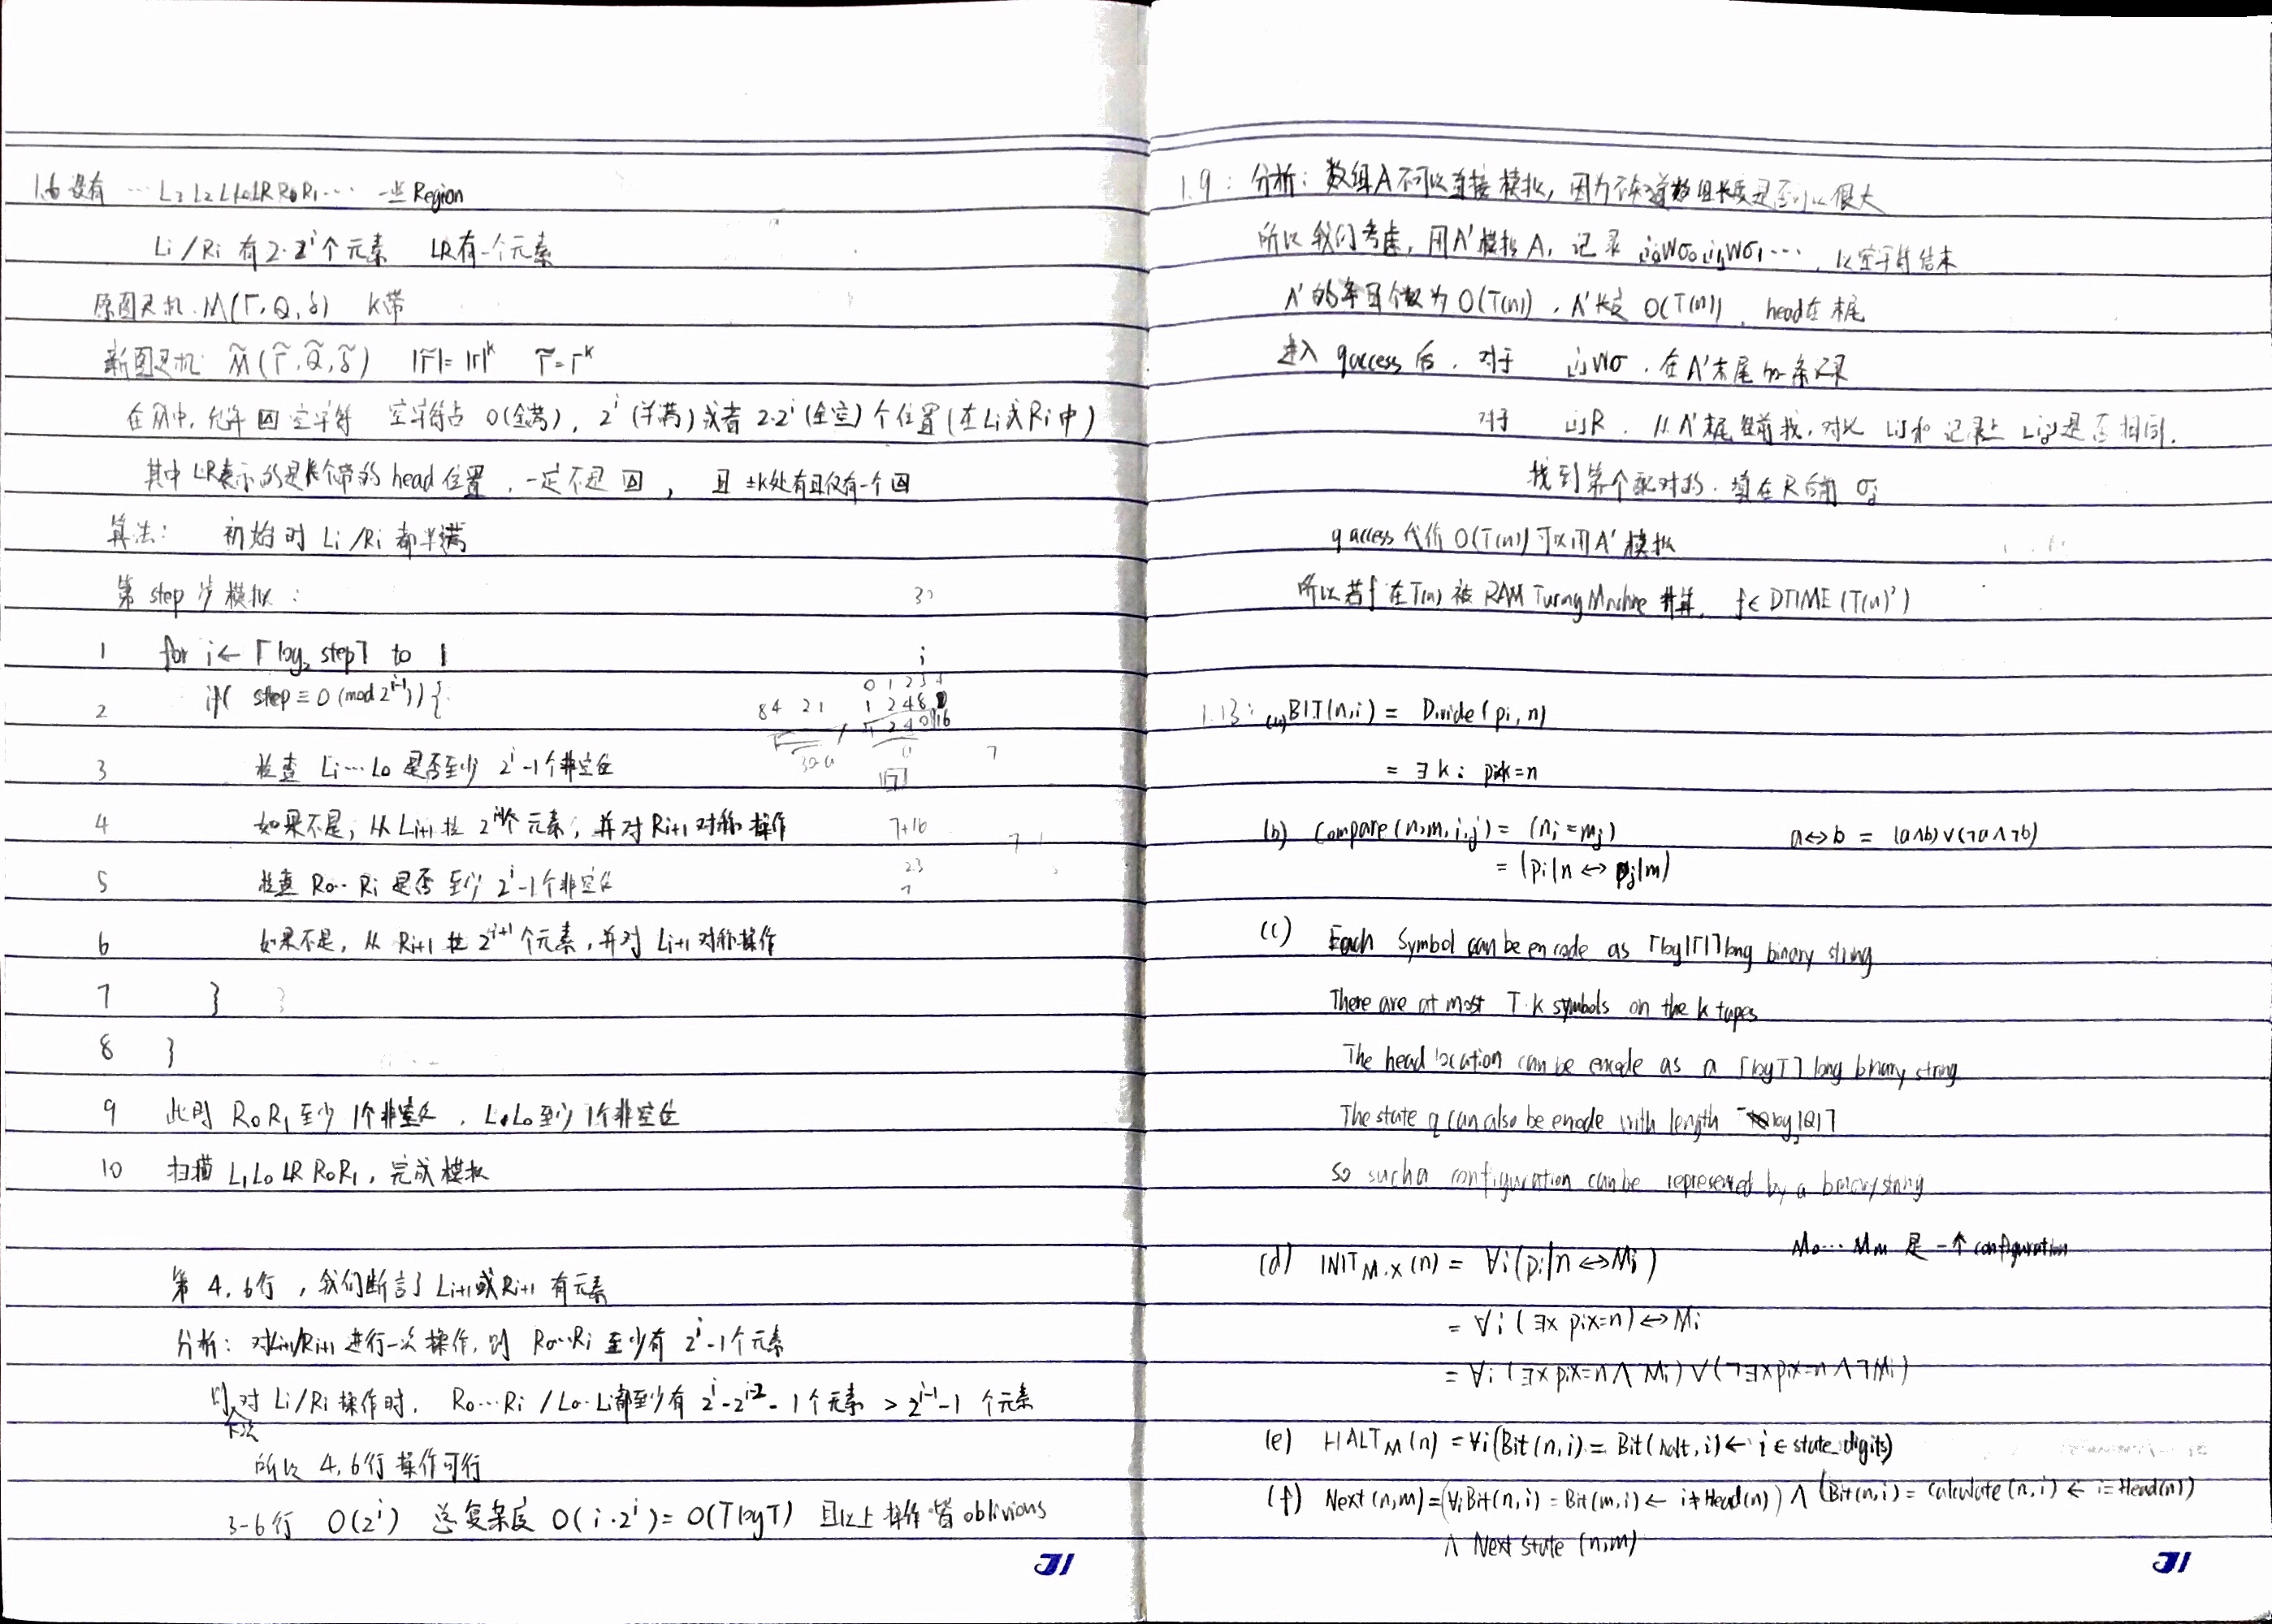 1.6 设有 … L2 L1 L0 LR R0 R1 … 一些 Region
Li/Ri 有 2·2^i 个元素 LR有一个元素
原图灵机 M(Γ,Q,δ) k带
新图灵机 M̃(Γ̃,Q̃,δ̃) |Γ̃|=|Γ|^k Γ̃=Γ^k
在M中,允许 空字符 空字符占 0(全满), 2^i(半满)或者 2·2^i(全空)个位置(在Li或Ri中)
其中LR表示的是k个带的head位置,一定不是 , 且 ±k处有且仅有一个
算法: 初始时 Li/Ri 都半满
第 step 步模拟:
1 for i ← ⌈log₂ step⌉ to 1
2 if( step ≡ 0 (mod 2^{i-1})) {
3 检查 Li…L0 是否至少 2^i-1个非空位
4 如果不是,从 Li+1 拉 个元素,并对Ri+1对称操作
5 检查 R0…Ri 是否至少 2^i-1个非空位
6 如果不是,从 Ri+1 拉 2^{i+1}个元素,并对 Li+1对称操作
7 }
8 }
9 此时 R0R1至少1个非空位, L1L0至少1个非空位
10 扫描 L1L0 LR R0R1,完成模拟
第 4,6行,我们断言了 Li+1或Ri+1 有元素
分析:对Li+1/Ri+1进行一次操作,则 R0…Ri 至少有 2^i-1个元素
则下次对 Li/Ri 操作时, R0…Ri / L0…Li都至少有 2^i-2^{i-2}-1个元素 > 2^{i-1}-1 个元素
所以 4,6行操作可行
3-6行 O(2^i) 总复杂度 O(i·2^i)=O(TlogT) 且以上操作皆oblivious
JI
1.9: 分析:数组A不可以直接模拟,因为不知道数组长度是否可以很大
所以我们考虑,用A'模拟A,记录 ⌊i₀⌋Wσ₀⌊i₁⌋Wσ₁…,以空字符结束
A'的条目个数为O(T(n)),A'长度 O(T(n)),head在末尾
进入 qaccess后,对于 ⌊i⌋Wσ,在A'末尾加一条记录
对于 ⌊i⌋R,从A'末尾往前找,对比⌊i⌋和记录上⌊ij⌋是否相同.
找到第一个配对的,填在R后面 σj
qaccess代价O(T(n))可以用A'模拟
所以若f在T(n)被 RAM Turing Machine 计算, f∈DTIME(T(n)²)
1.13: (a) BIT(n,i) = Divide(pi,n)
= ∃k: pi×k=n
(b) Compare(n,m,i,j) = (ni=mj) a↔b = (a∧b)∨(¬a∧¬b)
= (pi|n ↔ pj|m)
(c) Each symbol can be encode as ⌈log|Γ|⌉ long binary string
There are at most T·k symbols on the k tapes
The head location can be encode as a ⌈logT⌉ long binary string
The state q can also be encode with length ⌈log₂|Q|⌉
so such a configuration can be represented by a binary string
(d) INIT M,X (n) = ∀i(pi|n↔Mi) M0…Mm 是一个configuration
= ∀i(∃x pix=n)↔Mi
= ∀i(∃x pix=n∧Mi)∨(¬∃x pix=n∧¬Mi)
(e) HALT M (n) = ∀i(Bit(n,i)=Bit(halt,i)← i∈state digits)
(f) Next(n,m)=(∀iBit(n,i)=Bit(m,i)← i≠Head(n))∧(Bit(n,i)=Calculate(n,i)← i=Head(n))
∧ Next state (n,m)
JI